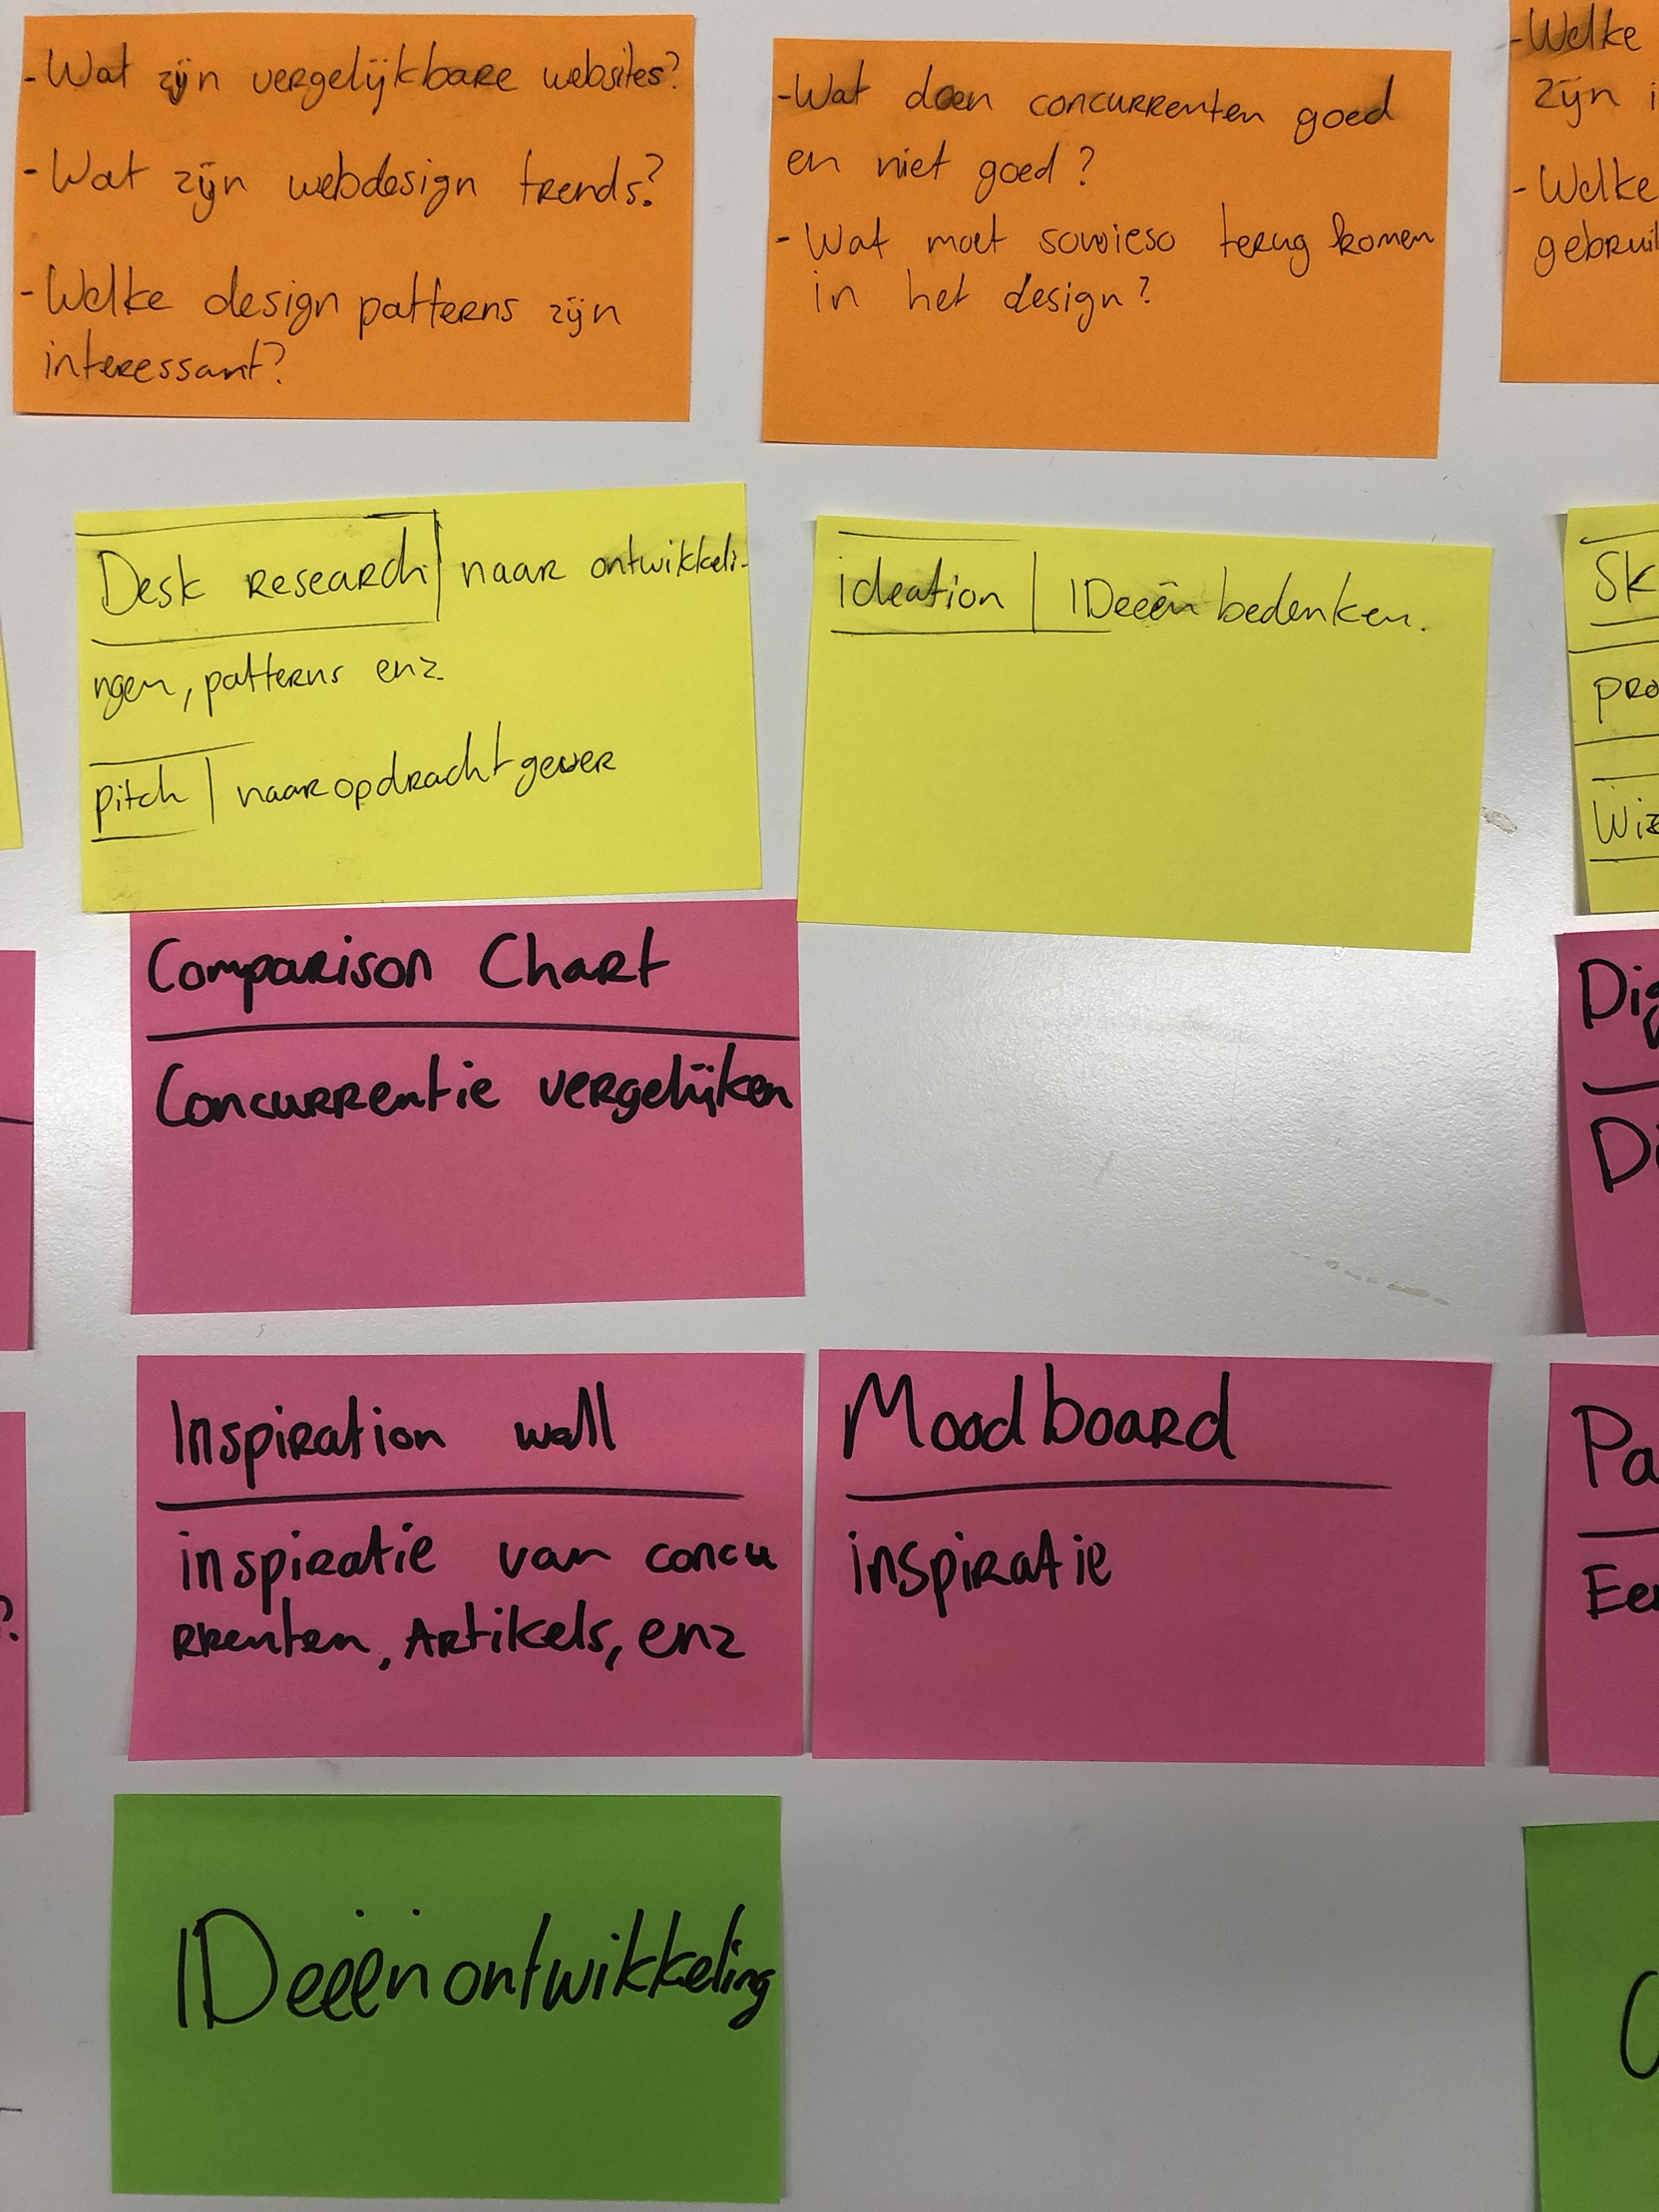 -Wat zijn vergelijkbare websites?
-Wat zijn webdesign trends?
-Welke design patterns zijn
interessant?
-Wat doen concurrenten goed
en niet goed?
-Wat moet sowieso terug komen
in het design?
-Welke
zijn
-Welke
Desk research | naar ontwikkeli-
ngen, patterns enz.
pitch | naar opdrachtgever
ideation | IDeeën bedenken.
Comparison Chart
Concurrentie vergelijken
Inspiration wall
inspiratie van concu
rrenten, Artikels, enz
Moodboard
inspiratie
IDeeënontwikkeling